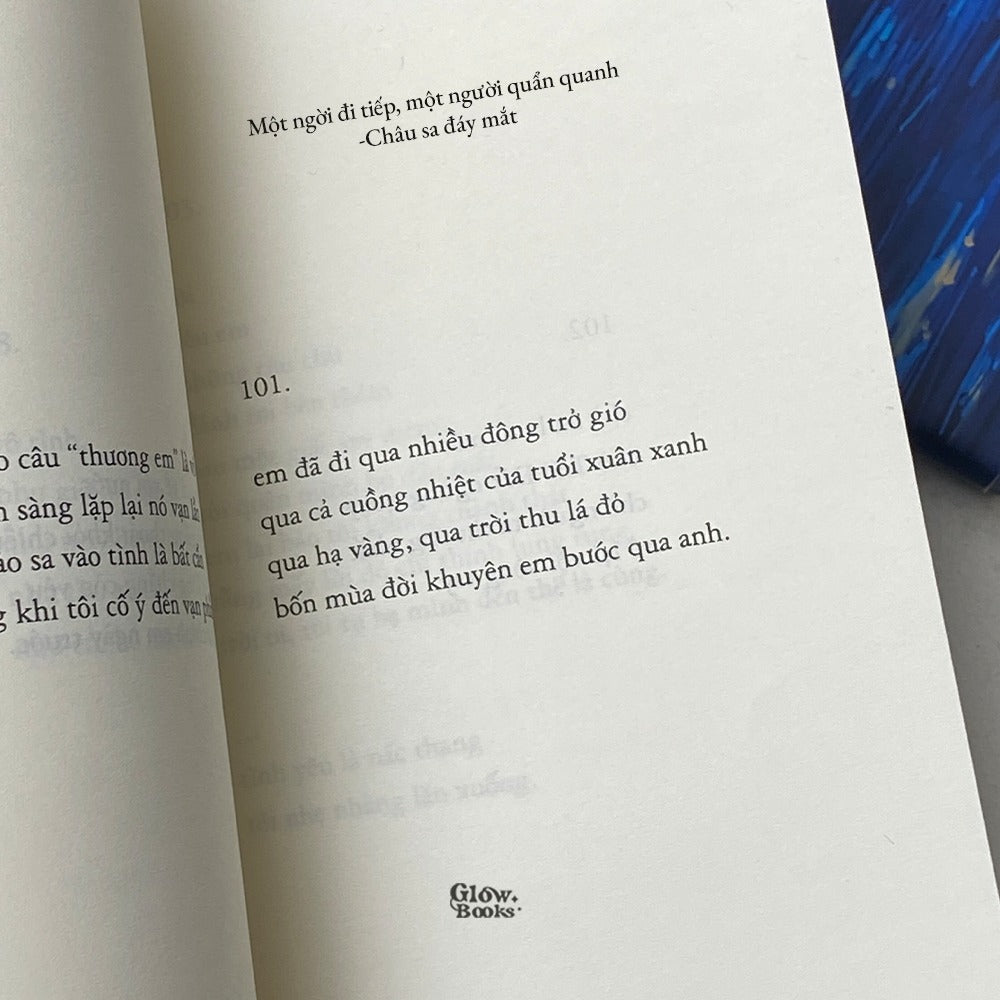 Một ngời đi tiếp, một người quẩn quanh
-Châu sa đáy mắt
câu “thương em” là
sàng lặp lại nó vạn
sa vào tình là bất
khi tôi cố ý đến vạn
101.
em đã đi qua nhiều đông trở gió
qua cả cuồng nhiệt của tuổi xuân xanh
qua hạ vàng, qua trời thu lá đỏ
bốn mùa đời khuyên em bước qua anh.
Glow.
Books